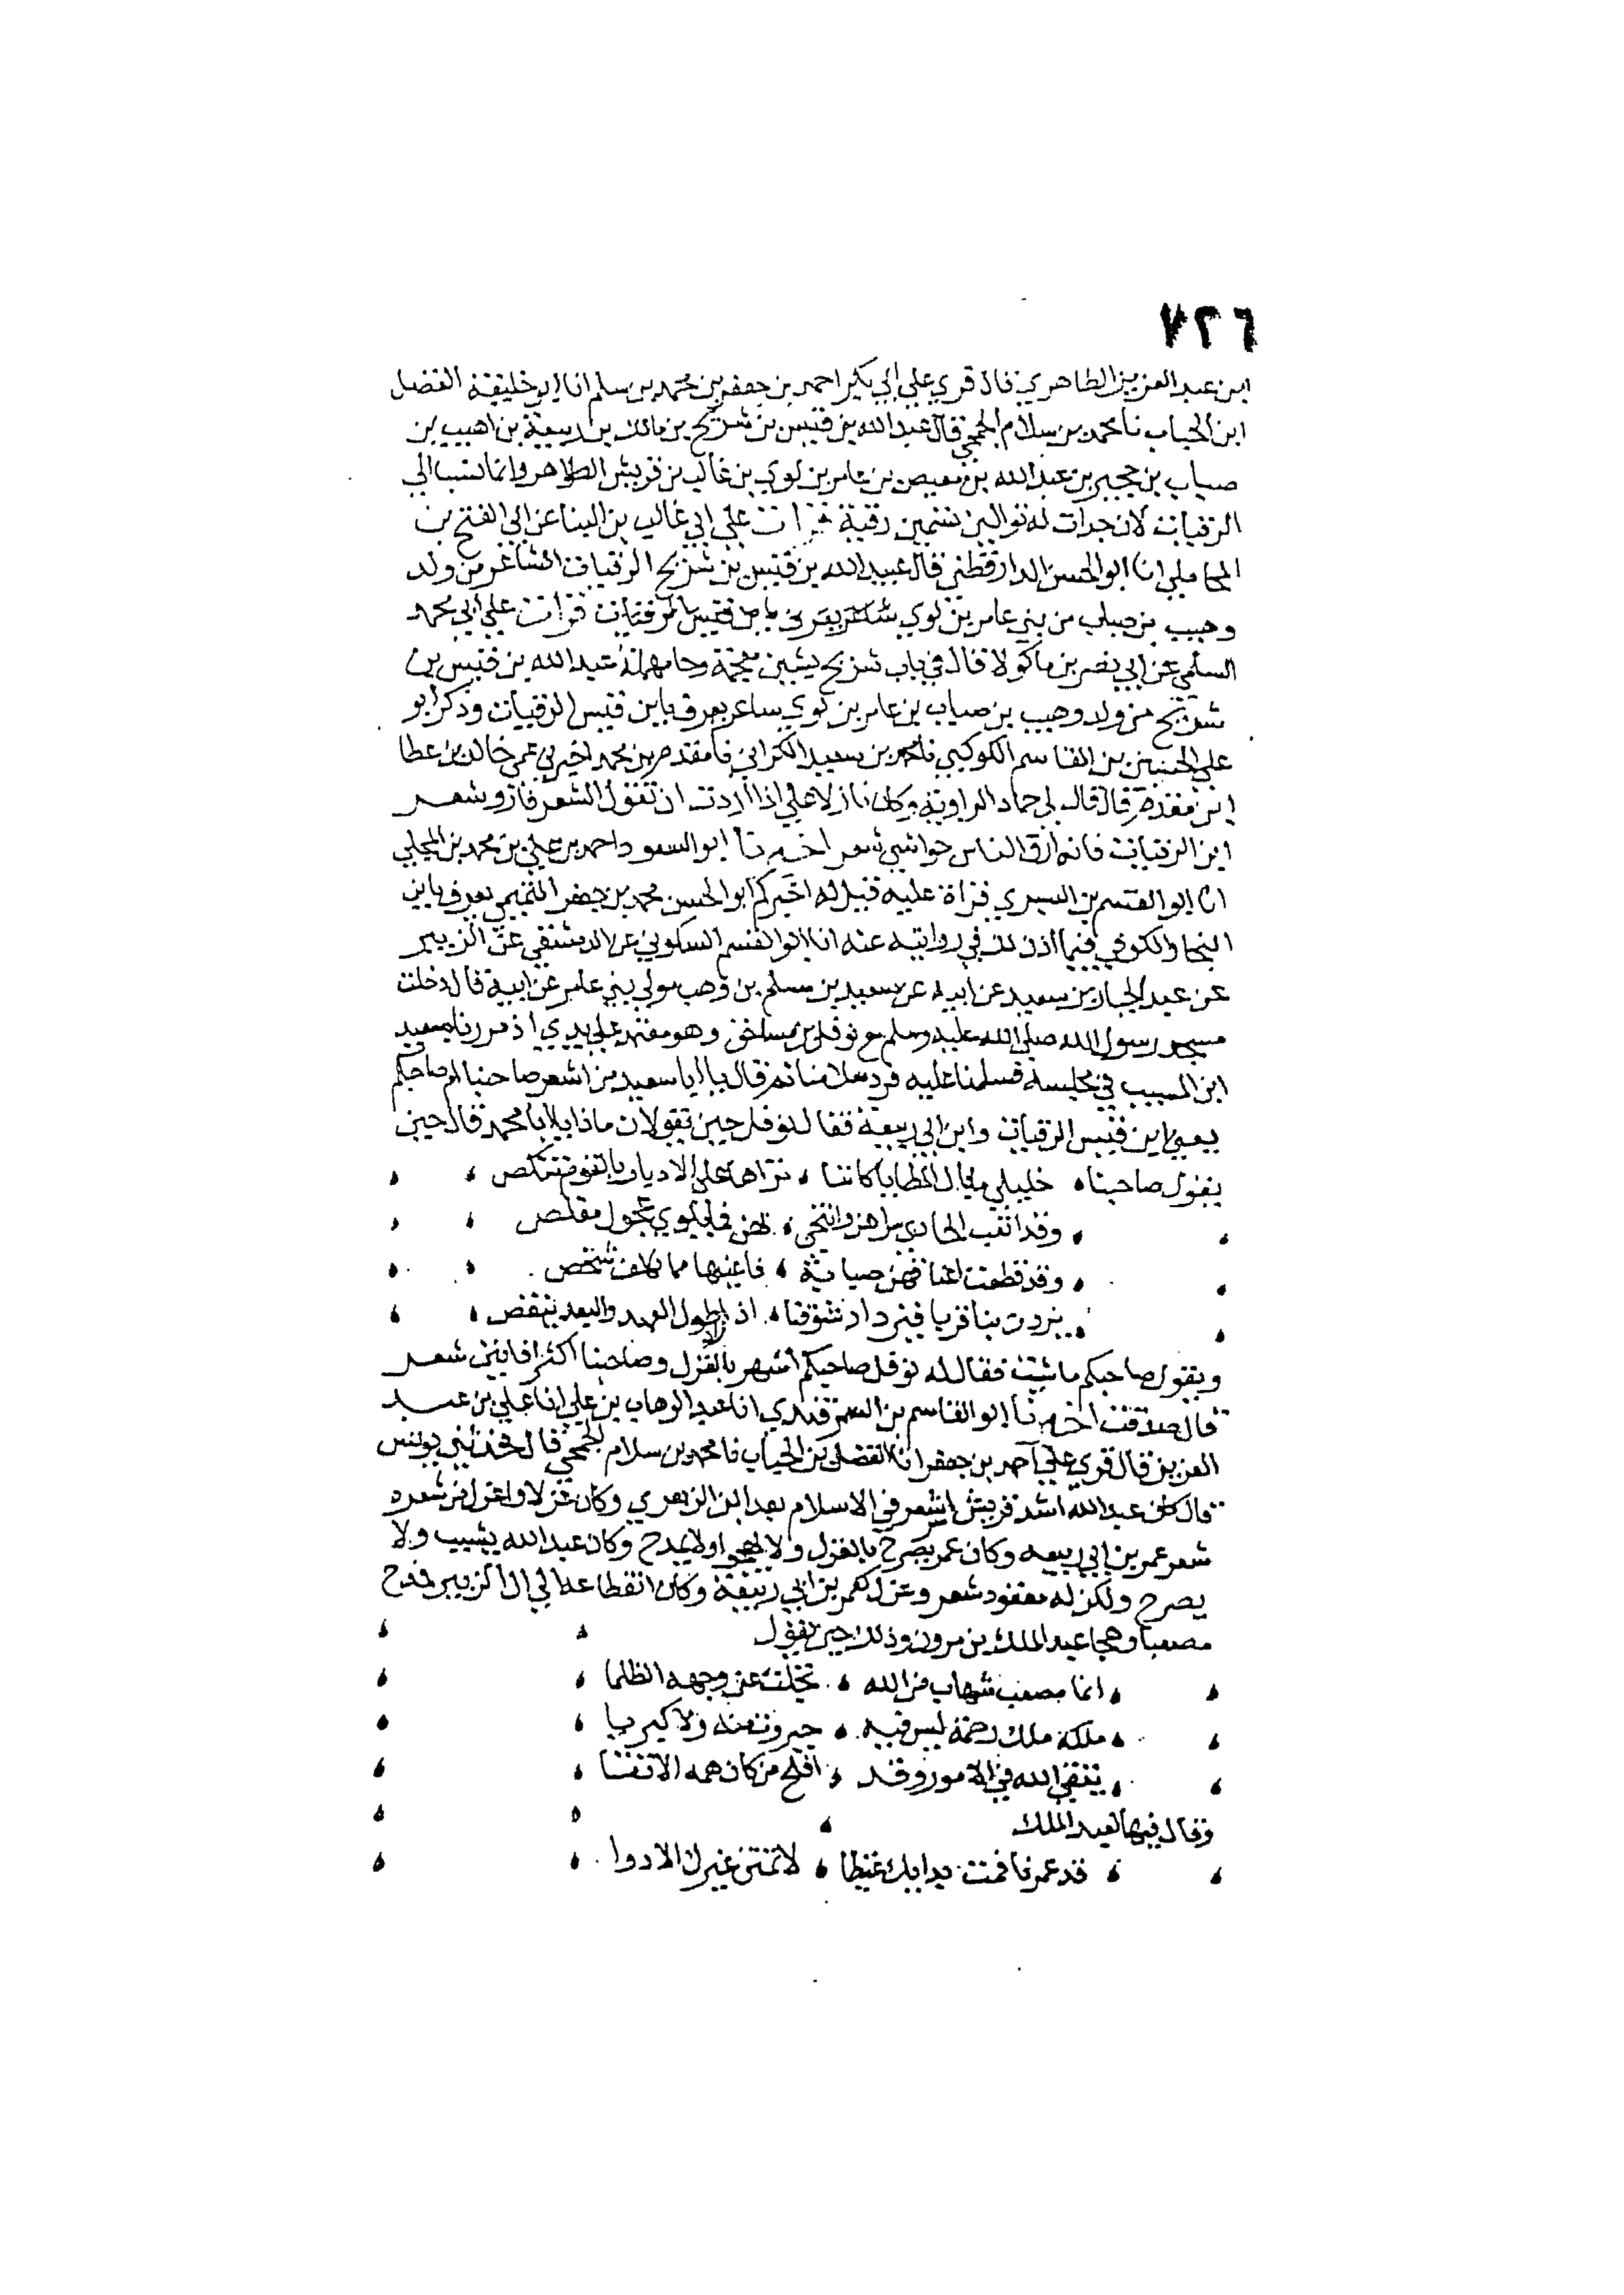 ٧٢٦
ابن عبد العزيز الطاهري قال قري علي ابي بكر احمد بن جعفر بن محمد بن سلم انا ابو خليفة الفضل
ابن الحباب نا محمد بن سلام الجمحي قال عبد الله بن قيس بن شريح بن مالك بن ربيعة بن اهيب بن
ضباب بن حجير بن عبد الله بن معيص بن عامر بن لوي بن غالب بن قريش الظواهر وانما نسب الي
الرقيات لان جدات له توالين يسمين رقية قرات علي ابي غالب بن البنا عن ابي الفتح بن
المحاملي انا ابو الحسن الدارقطني قال عبيد الله بن قيس بن شريح الرقيات الشاعر من ولد
وهيب بن ضباب من بني عامر بن لوي شاعر يعرف بابن قيس الرقيات قرات علي ابي محمد
السلمي عن ابي نصر بن ماكولا قال في باب شريح بشين معجمة وحا مهملة عبد الله بن قيس بن
شريح من ولد وهيب بن ضباب بن عامر بن لوي شاعر يعرف بابن قيس الرقيات وذكر ابو
علي الحسين بن القاسم الكوكبي نا محمد بن سعيد الكراني نا مقدم بن محمد اخبرني عمي خالد بن عطا
ابن مقدم قال قال لي حماد الراوية وكان نازلا علي اذا اردت ان تقول الشعر فارو شعر
ابن الرقيات فانه ارق الناس حواشي شعر اخبرنا ابو السعود احمد بن علي بن محمد بن المجلي
انا ابو القسم بن البسري قراة عليه قيل له اخبركم ابو الحسن محمد بن جعفر التميمي يعرف بابن
النجار الكوفي فيما اذن لك في روايته عنه انا ابو القسم السكوني عن الدمشقي عن الزبير
عن عبد الجبار بن سعيد عن ابيه عن سعيد بن مسلم بن وهب مولي بني عامر عن ابيه قال دخلت
مسجد رسول الله صلي الله عليه وسلم مع نوفل بن مساحق وهو معتمد علي يدي اذ مررنا بسعيد
ابن المسيب في مجلسه فسلمنا عليه فرد سلامنا ثم قال يا ابا سعيد من اشعر صاحبنا ام صاحبكم
يعني ابن قيس الرقيات وابن ابي ربيعة فقال نوفل حين تقولان ماذا يا ابا محمد قال حين
يقول صاحبنا خليلي ما بال المطايا كاننا نراها علي الادبار بالقوم تنكص
وقد اتعب الحادي سراهن وانتحي لهن فما يلوي عجول مقلص
وقد قطعت اعناقهن صبابة فاعينها مما تكلف تشخص
يزدن بنا قربا فيزداد شوقنا اذا زاد طول العهد والبعد ينقص
ويقول صاحبكم ما شئت فقال له نوفل صاحبكم اشهر بالغزل وصاحبنا اكثر افانين شعر
قال صدقت اخبرنا ابو القاسم بن السمرقندي انا عبد الوهاب بن علي انا علي بن عبد
العزيز قال قري علي احمد بن جعفر انا الفضل بن الحباب نا محمد بن سلام الجمحي قال فحدثني يونس
قال كان عبد الله اشد قريش اسر شعر في الاسلام بعد ابن الزبعري وكان غزلا واغزل من شعره
شعر عمر بن ابي ربيعه وكان عمر يصرح بالغزل ولا يهجوا ولا يمدح وكان عبد الله يشبب ولا
يصرح ولكن له معقود شعر وغزل كعمر بن ابي ربيعة وكان انقطاعه الي ال الزبير فمدح
مصعبا وهجا عبد الملك بن مرون وذلك حين يقول
انما مصعب شهاب من الله تجلت عن وجهه الظلما
ملكه ملك رحمة ليس فيه جبروت منه ولا كبريا
يتقي الله في الامور وقد افلح من كان همه الاتقا
وقال فيها لعبد الملك